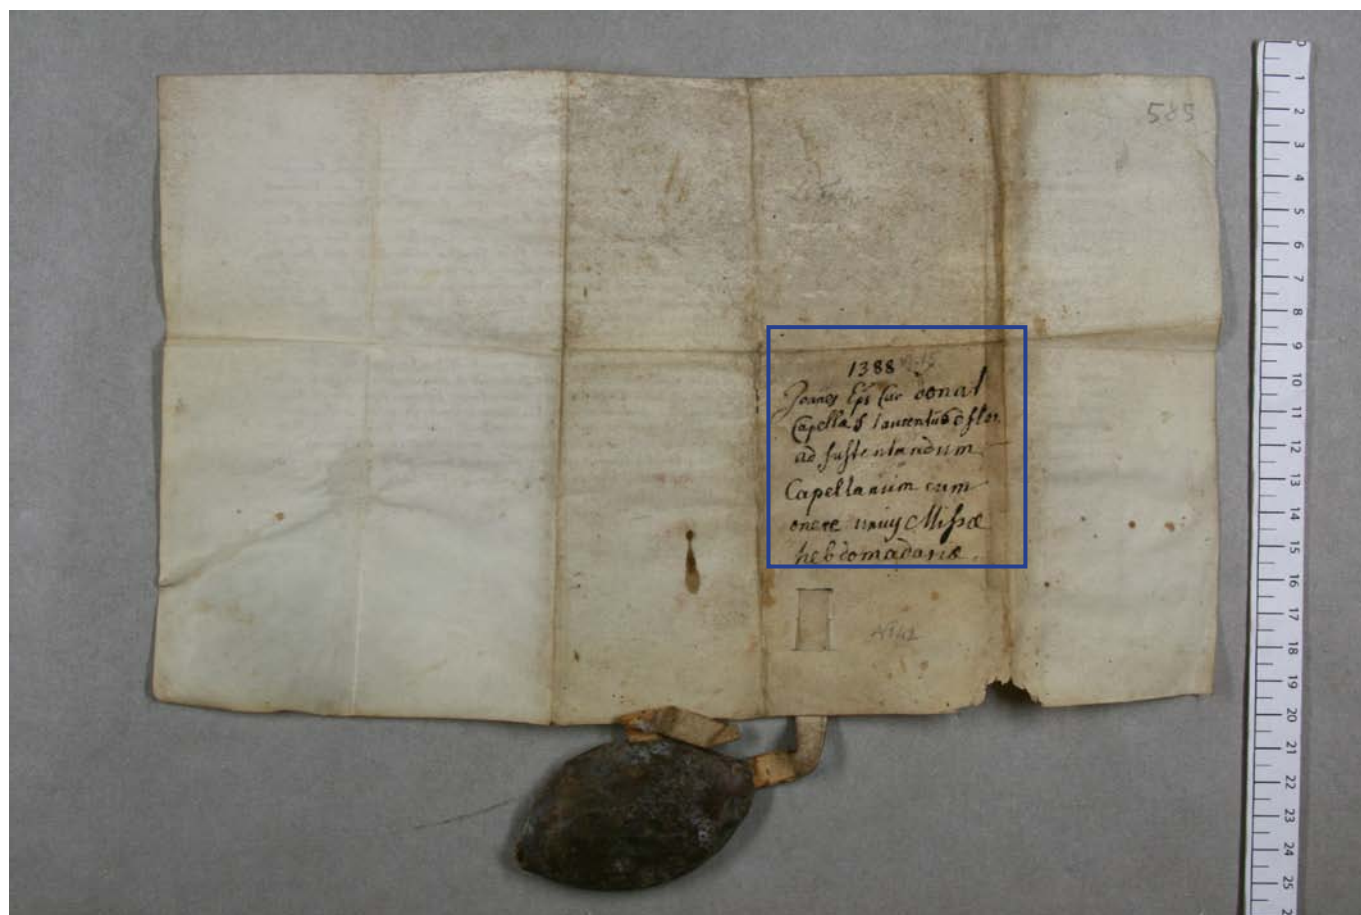 585
1388
Joannes Eps Cur donat
Capellã S Laurentii
ad sustentandum
Capellanum cum
onere unius Missæ
hebdomadariæ.
0
1
2
3
4
5
6
7
8
9
10
11
12
13
14
15
16
17
18
19
20
21
22
23
24
25